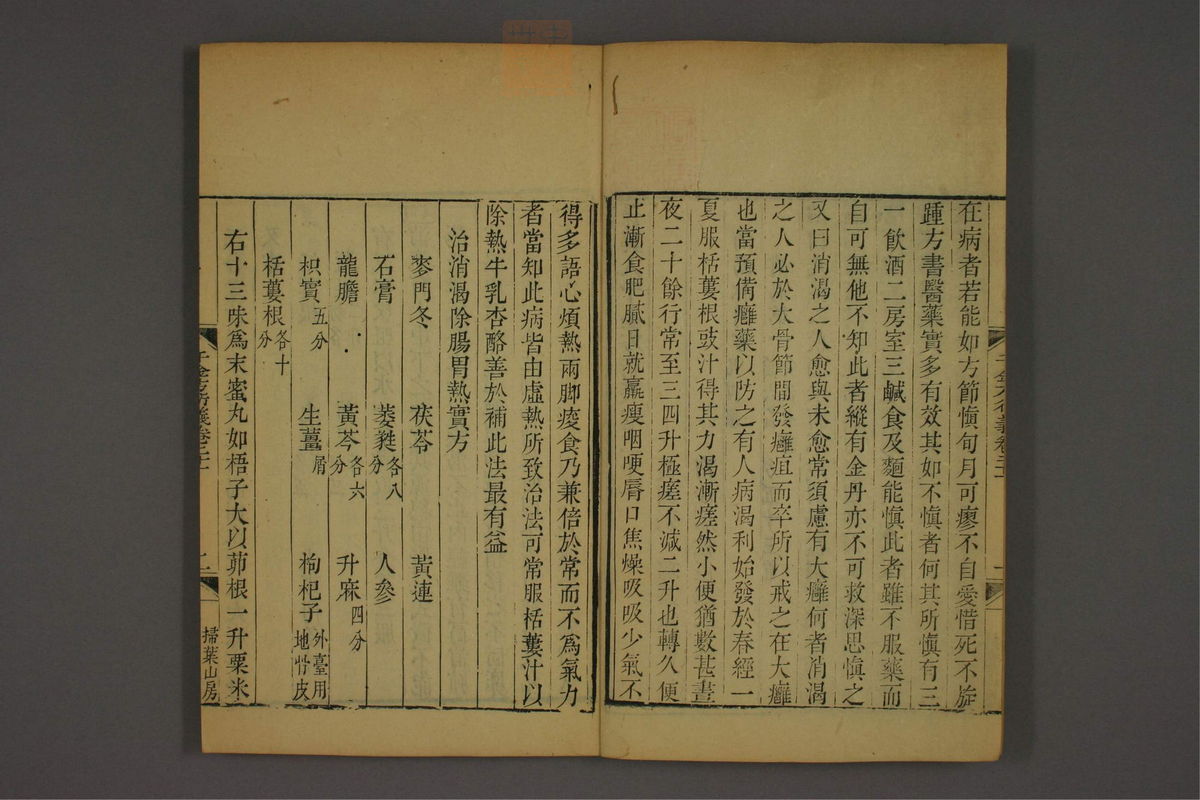 在病者若能如方節愼旬月可瘳不自愛惜死不旋
踵方書醫藥實多有效其如不愼者何其所愼有三
一飲酒二房室三鹹食及麵能愼此者雖不服藥而
自可無他不知此者縱有金丹亦不可救深思愼之
又曰消渴之人愈與未愈常須慮有大癰何者消渴
之人必於大骨節間發癰疽而卒所以戒之在大癰
也當預備癰藥以防之有人病渴利始發於春經一
夏服栝蔞根豉汁得其力渴漸瘥然小便猶數甚晝
夜二十餘行常至三四升極瘥不減二升也轉久便
止漸食肥膩日就羸瘦咽哽脣口焦燥吸吸少氣不
得多語心煩熱兩脚痠食乃兼倍於常而不爲氣力
者當知此病皆由虛熱所致治法可常服栝蔞汁以
除熱牛乳杏酪善於補此法最有益
治消渴除腸胃熱實方
麥門冬 茯苓 黃連
石膏 萎蕤各八分 人參
龍膽 黃芩各六分 升麻四分
枳實五分 生薑屑 枸杞子外臺用地骨皮
栝蔞根各十分
右十三味爲末蜜丸如梧子大以茆根一升粟米
千金方衍義卷二十一 二 掃葉山房